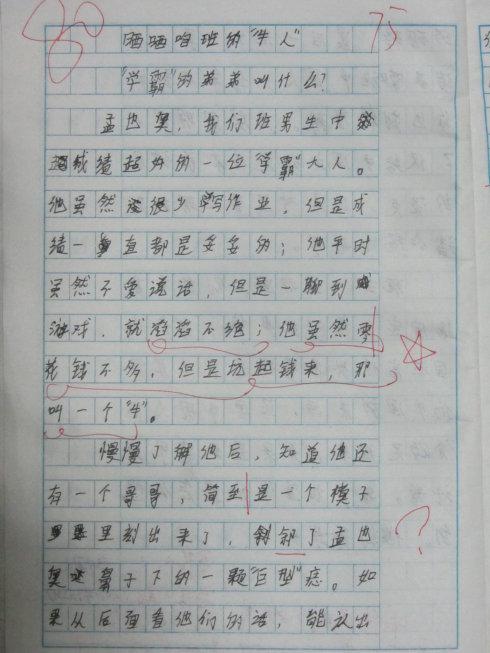 80 75
晒晒咱班的“牛人”
“学霸”的弟弟叫什么?
孟也昊,我们班男生中
成绩超好的一位“学霸”大人。
他虽然很少写作业,但是成
绩一直都是妥妥的;他平时
虽然不爱说话,但是一聊到
游戏,就滔滔不绝;他虽然零
花钱不多,但是坑起钱来,那
叫一个“牛”。
慢慢了解他后,知道他还
有一个哥哥,简至是一个模子
里刻出来了,除了孟也
昊鼻子下的一颗“巨型”痣。如
果从后面看他们的话,能认出
?